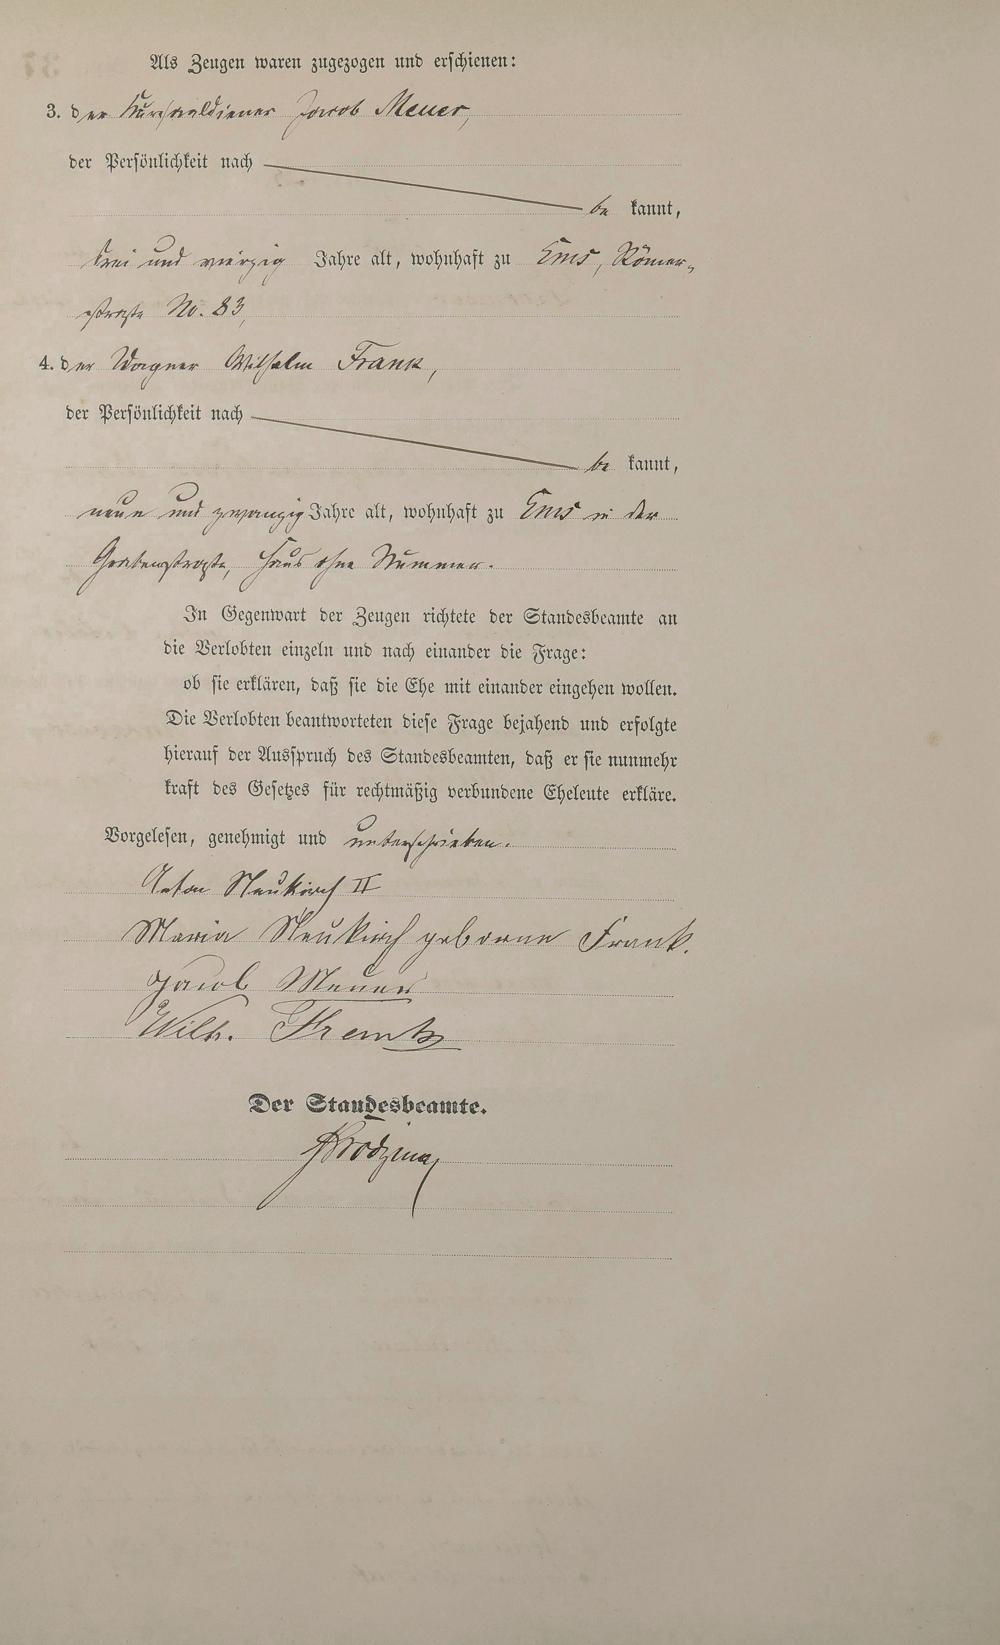 Als Zeugen waren zugezogen und erschienen:
3. der Kursaaldiener Jacob Meuer,
der Persönlichkeit nach
be kannt,
drei und vierzig Jahre alt, wohnhaft zu Ems, Römer-
straße No. 83,
4. der Wagner Wilhelm Frank,
der Persönlichkeit nach
be kannt,
neun und zwanzig Jahre alt, wohnhaft zu Ems in der
Grabenstraße, Haus ohne Nummer.
In Gegenwart der Zeugen richtete der Standesbeamte an
die Verlobten einzeln und nach einander die Frage:
ob sie erklären, daß sie die Ehe mit einander eingehen wollen.
Die Verlobten beantworteten diese Frage bejahend und erfolgte
hierauf der Ausspruch des Standesbeamten, daß er sie nunmehr
kraft des Gesetzes für rechtmäßig verbundene Eheleute erkläre.
Vorgelesen, genehmigt und unterschrieben.
Anton Neukirch II
Maria Neukirch geborne Frank.
Jacob Meuer
Wilh.
Der Standesbeamte.